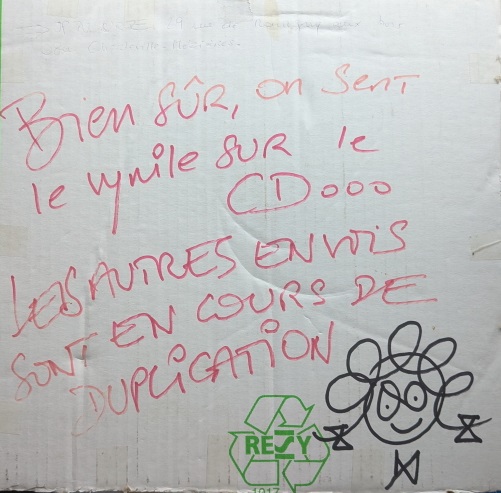 Bien SÛR, on Sent
le vynile SUR le
CD ooo
LES AUTRES ENVOIS
SONT EN COURS DE
DUPLICATION
RESY